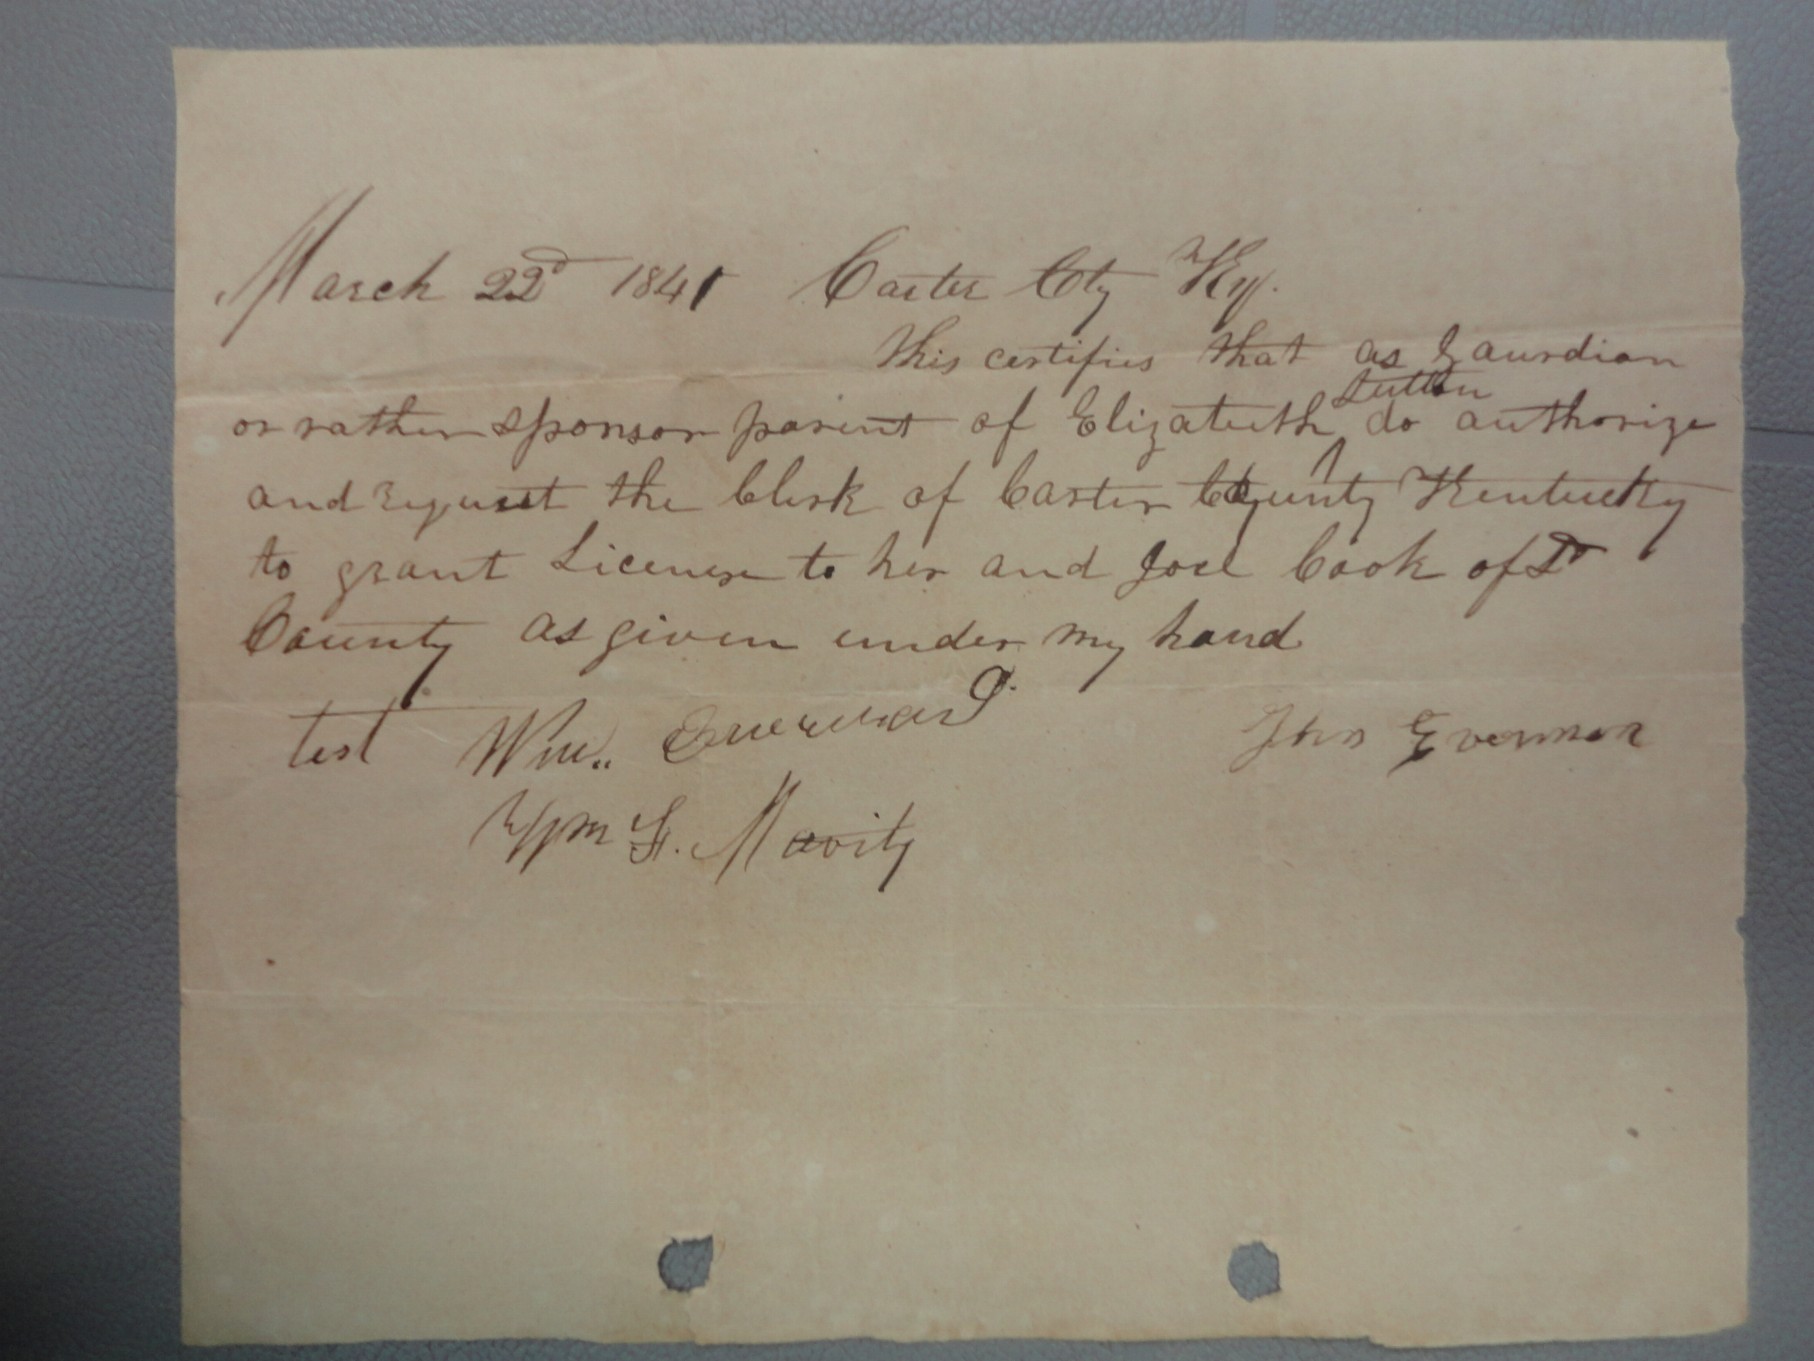 March 22d 1841 Carter Cty Ky.
this certifies that as Gaurdian
or rather sponsor parent of Elizabeth Sutton do authorize
and request the Clerk of Carter County Kentucky
to grant License to her and Joel Cook of Sd
County as given under my hand
test Wm. Everman John Everman
Wm F. Mavity